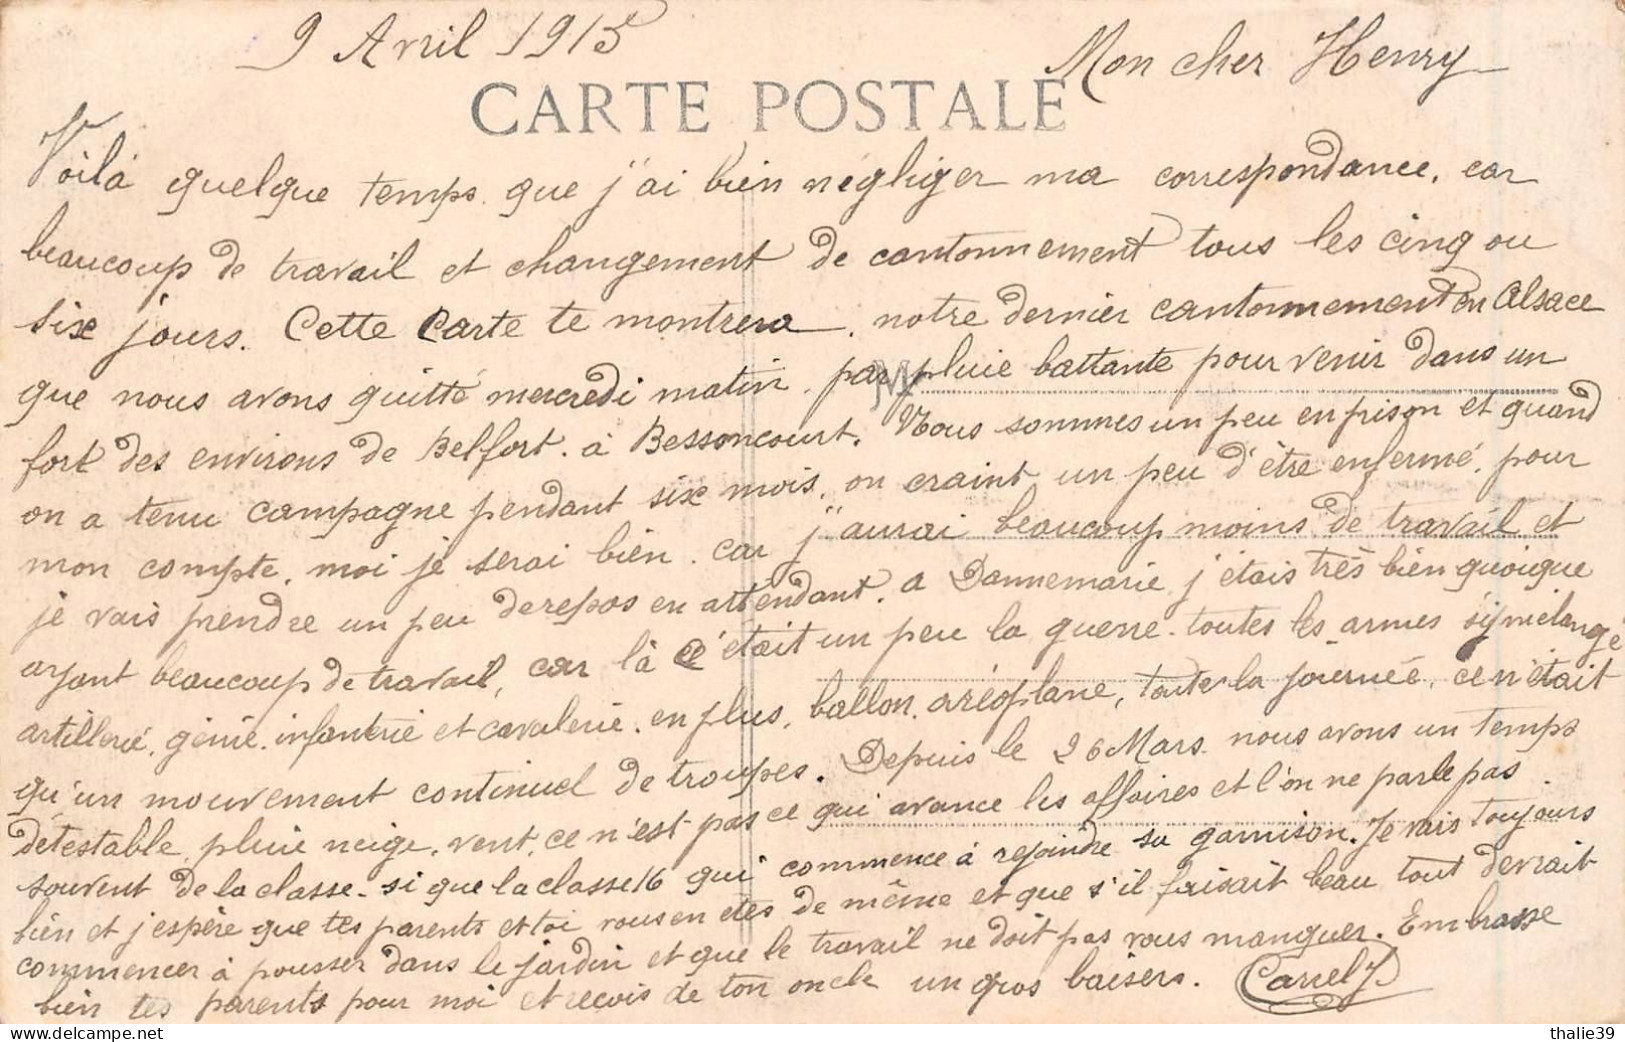 9 Avril 1915
Mon cher Henry
CARTE POSTALE
Voilà quelque temps que j'ai bien négliger ma correspondance, car
beaucoup de travail et changement de cantonnement tous les cinq ou
six jours. Cette Carte te montrera notre dernier cantonnement en Alsace
que nous avons quitté mercredi matin, par pluie battante pour venir dans un
fort des environs de Belfort. à Bessoncourt. Nous sommes un peu en prison et quand
on a tenu campagne pendant six mois, on craint un peu d'être enfermé, pour
mon compte, moi je serai bien, car j'aurai beaucoup moins de travail et
je vais prendre un peu de repos en attendant. a Dannemarie j'étais très bien quoique
ayant beaucoup de travail, car là c'était un peu la guerre. toutes les armes s'y mélange
artillerie, génie, infanterie et cavalerie. en plus, ballon, aréoplane, toute la journée, ce n'était
qu'un mouvement continuel de troupes. Depuis le 26 Mars nous avons un temps
détestable, pluie neige, vent, ce n'est pas ce qui avance les affaires et l'on ne parle pas
souvent de la classe. si que la classe 16 qui commence à rejoindre sa garnison. Je vais toujours
bien et j'espère que tes parents et toi vous en etes de même et que s'il faisait beau tout devrait
commencer à pousser dans le jardin et que le travail ne doit pas vous manquer. Embrasse
bien tes parents pour moi et reçois de ton oncle un gros baisers.
thalie39